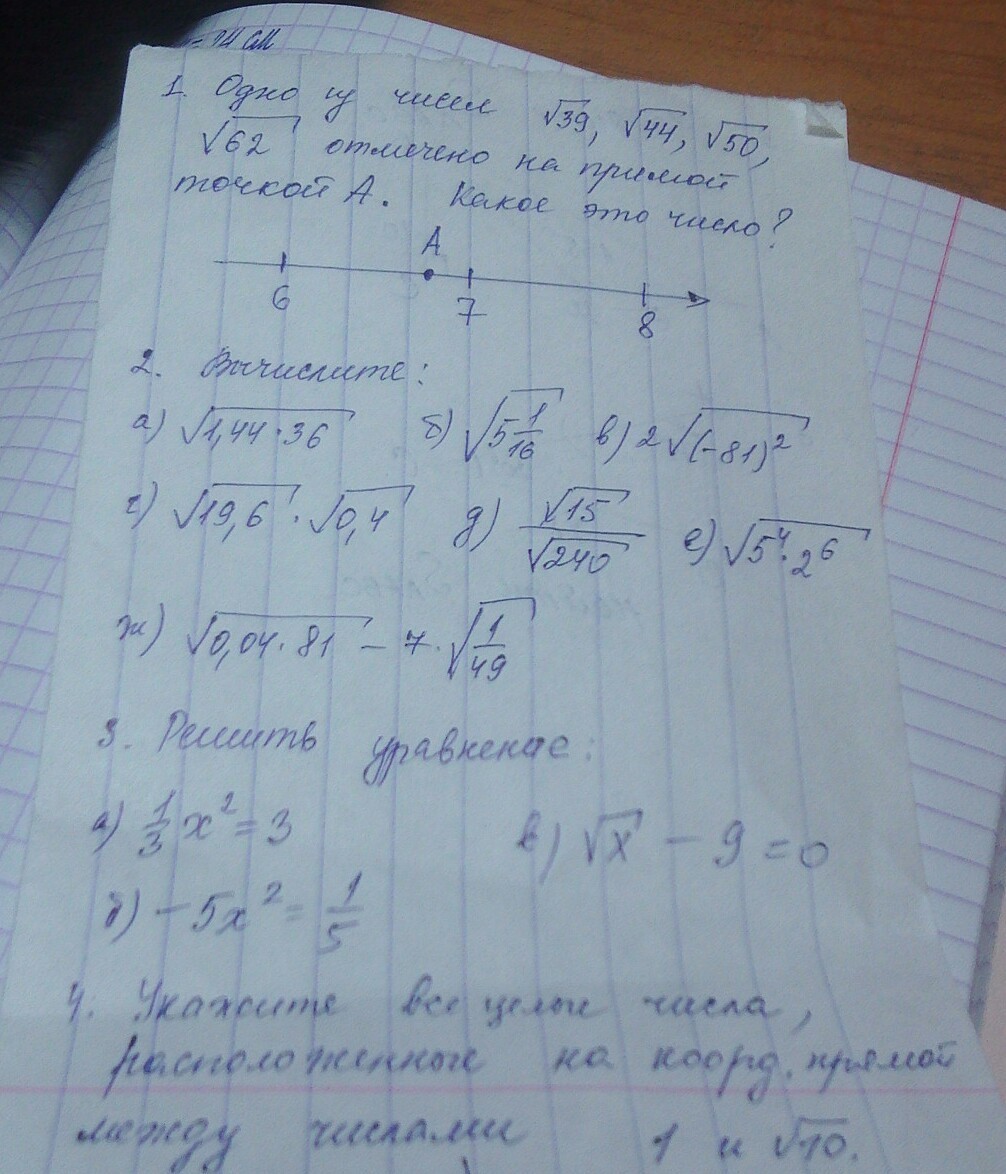 = 14 см
1. Одно из чисел √39, √44, √50,
√62 отмечено на прямой
точкой А. Какое это число?
А
6 7 8
2. Вычислите:
а) √(1,44·36) б) √(5 1/16) в) 2√((-81)²)
г) √19,6 · √0,4 д) √15/√240 е) √(5⁴·2⁶)
ж) √(0,04·81) - 7·√(1/49)
3. Решить уравнение:
а) 1/3 x² = 3 в) √x - 9 = 0
б) -5x² = 1/5
4. Укажите все целые числа,
расположенные на коорд. прямой
между числами 1 и √10.